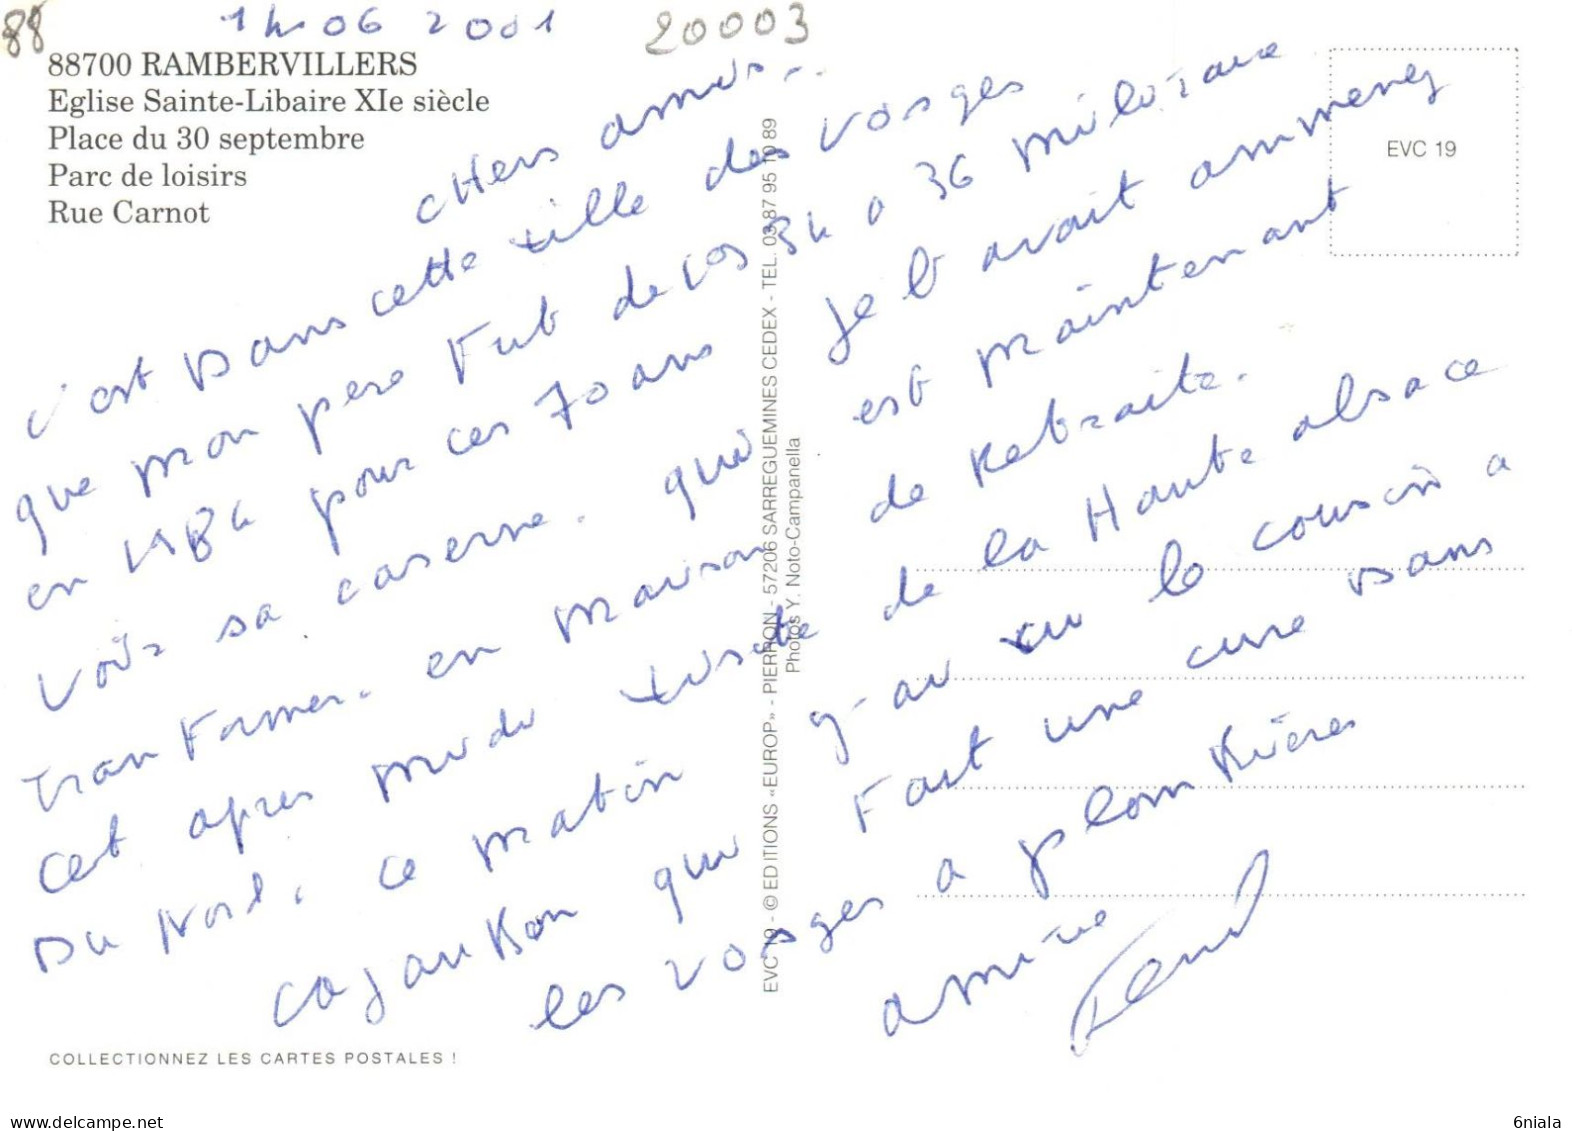 88
14 06 2001
20003
88700 RAMBERVILLERS
Eglise Sainte-Libaire XIe siècle
Place du 30 septembre
Parc de loisirs
Rue Carnot
EVC 19
CHers amis..
c'est Dans cette ville des vosges
que mon pere Fut de 1934 a 36 militaire
en 1984 pour ces 70 ans je l'avait ammeney
voir sa caserne. qui est maintenant
tranFormer. en maison de Retraite.
cet apres midi visite de la Haute alsace
Du Nord. ce matin y-au vu le cousin a
qui Fait une cure Dans
les vosges a plombières
amitie
EVC 19 - © EDITIONS «EUROP» - PIERRON - 57206 SARREGUEMINES CEDEX - TEL. 03 87 95 10 89
Photos Y. Noto-Campanella
COLLECTIONNEZ LES CARTES POSTALES !
www.delcampe.net
6niala